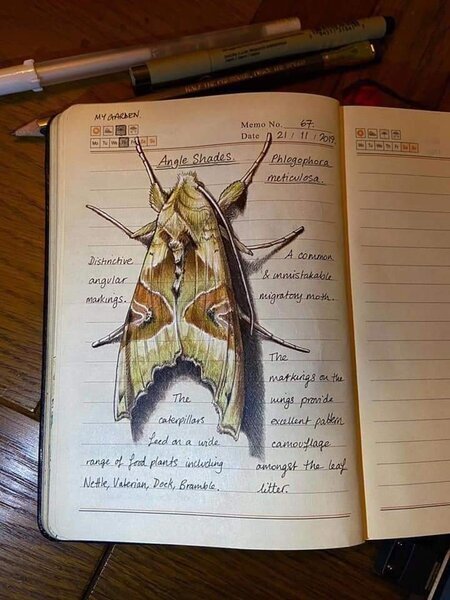 MY GARDEN.
Memo No. 67.
Mo Tu We Th Fr Sa Su
Date 21 / 11 / 2019
Angle Shades.
Phlogophora
meticulosa.
Distinctive
angular
markings.
A common
& unmistakable
migratory moth.
The
caterpillars
feed on a wide
range of food plants including
Nettle, Valerian, Dock, Bramble.
The
markings on the
wings provide
excellent pattern
camouflage
amongst the leaf
litter.